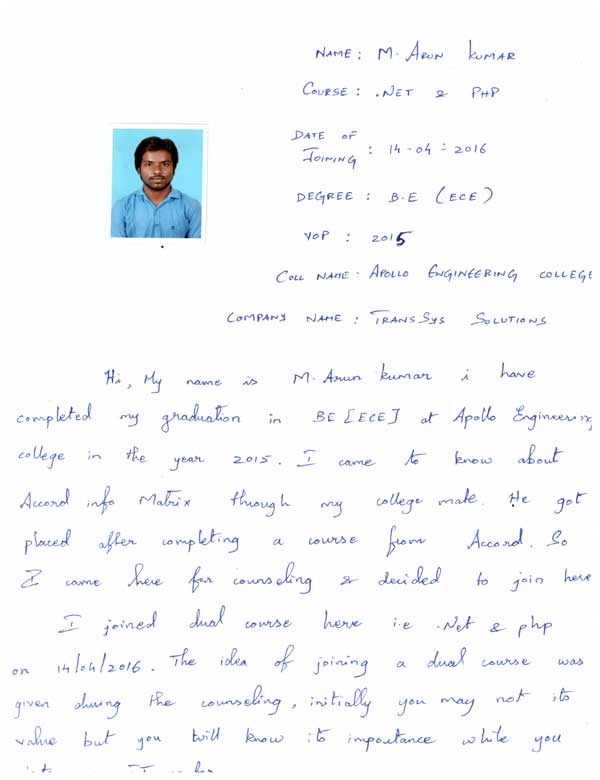 NAME : M. ARUN KUMAR
COURSE : .NET & PHP
DATE OF
JOINING : 14-04-2016
DEGREE : B.E (ECE)
YOP : 2015
COLL NAME : APOLLO ENGINEERING COLLEGE
COMPANY NAME : TRANSSYS SOLUTIONS
Hi, My name is M. Arun kumar i have
completed my graduation in BE [ECE] at Apollo Engineering
college in the year 2015. I came to know about
Accord info Matrix through my college mate. He got
placed after completing a course from Accord. So
I came here for counseling & decided to join here
I joined dual course here i.e .Net & php
on 14/04/2016. The idea of joining a dual course was
given during the counseling, initially you may not its
value but you will know its importance while you